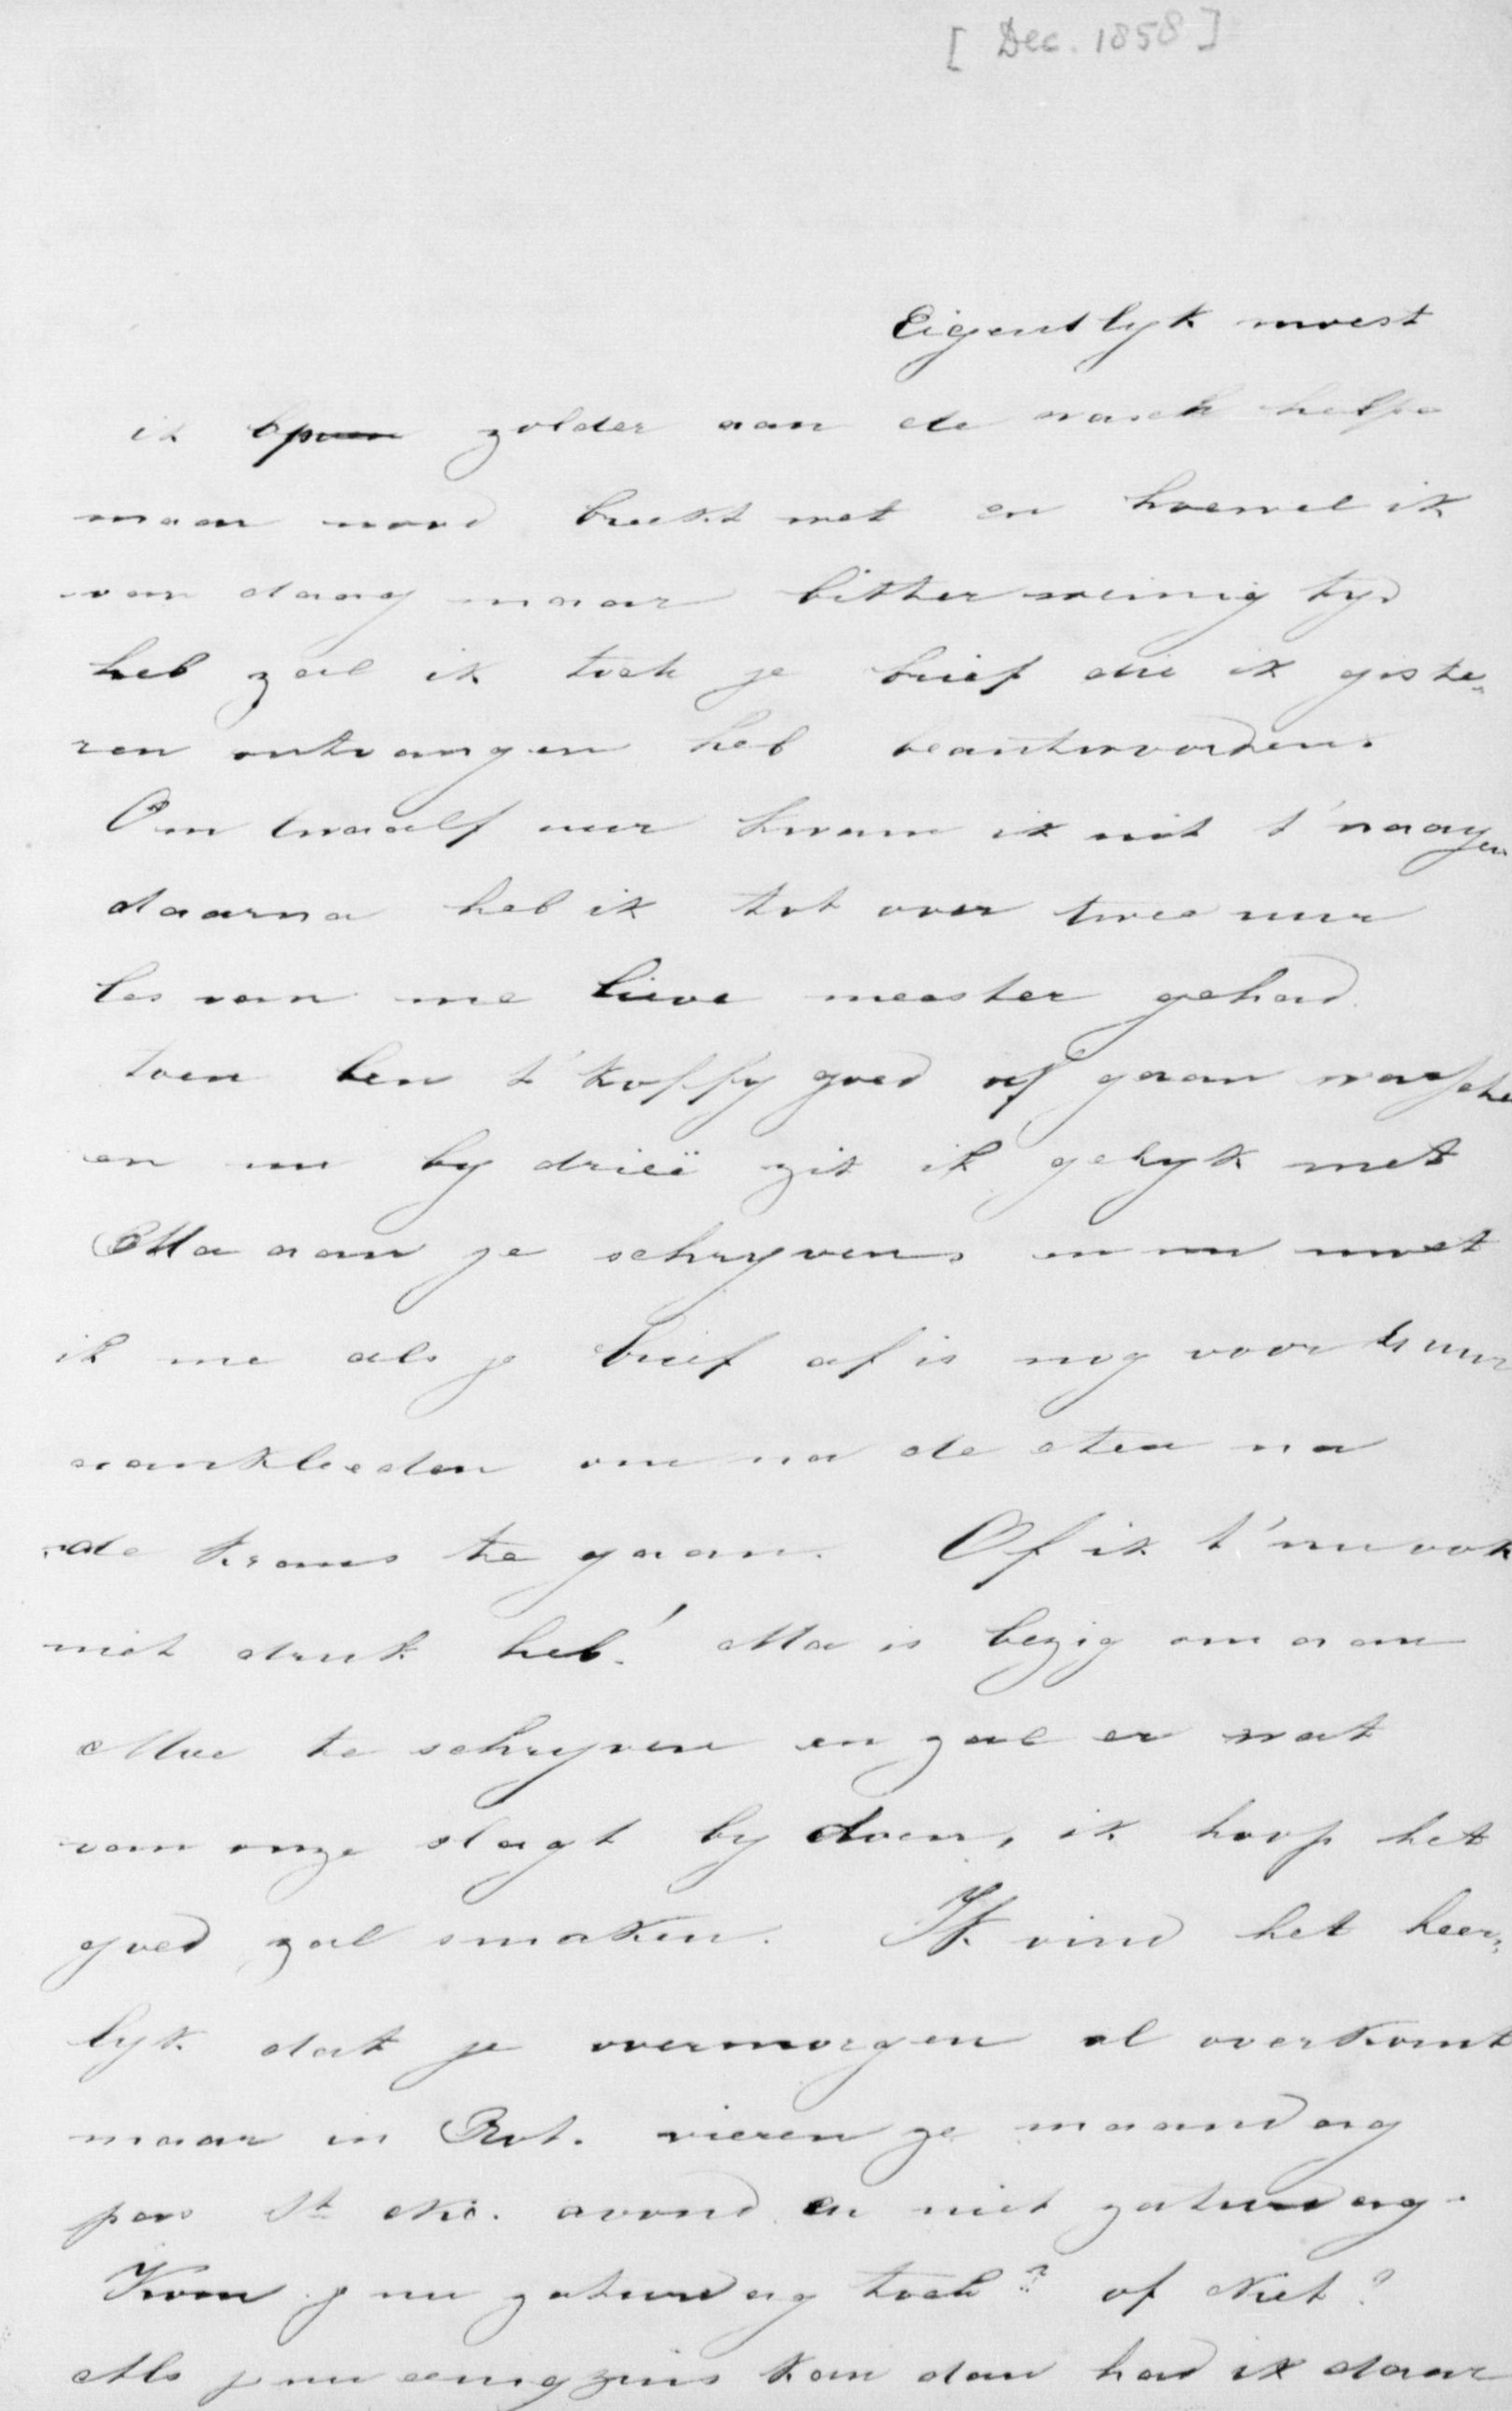 [Dec. 1858]
Eigentlyk moest
ik op zolder aan de wasch helpe
maar nood breekt wet en hoewel ik
van daag maar bitter weinig tyd
heb zal ik toch je brief die ik giste„
ren ontvangen heb beantwoorden.
Om twaalf uur kwam ik uit t'naayen
daarna heb ik tot over twee uur
les van me lieve meester gehad.
toen ben t'koffy goed af gaan wasche
en nu by drieë zit ik gelyk met
Ma aan je schryven, en nu moet
ik me als j brief af is nog voor uur
aankleeden om na de eten na
de krans te gaan. Of ik t'nu ook
niet druk heb! Ma is bezig om aan
Moe te schryven en zal er wat
van onze slagt by doen, ik hoop het
goed zal smaken. Ik vind het heer„
lyk dat je overmorgen al overkomt
maar in Rot. vieren ze maandag
pas St Nic. avond en niet zaturdag.
Kom j nu zaturdag toch? of Niet?
Als j nu eenigzins kan dan had ik daar